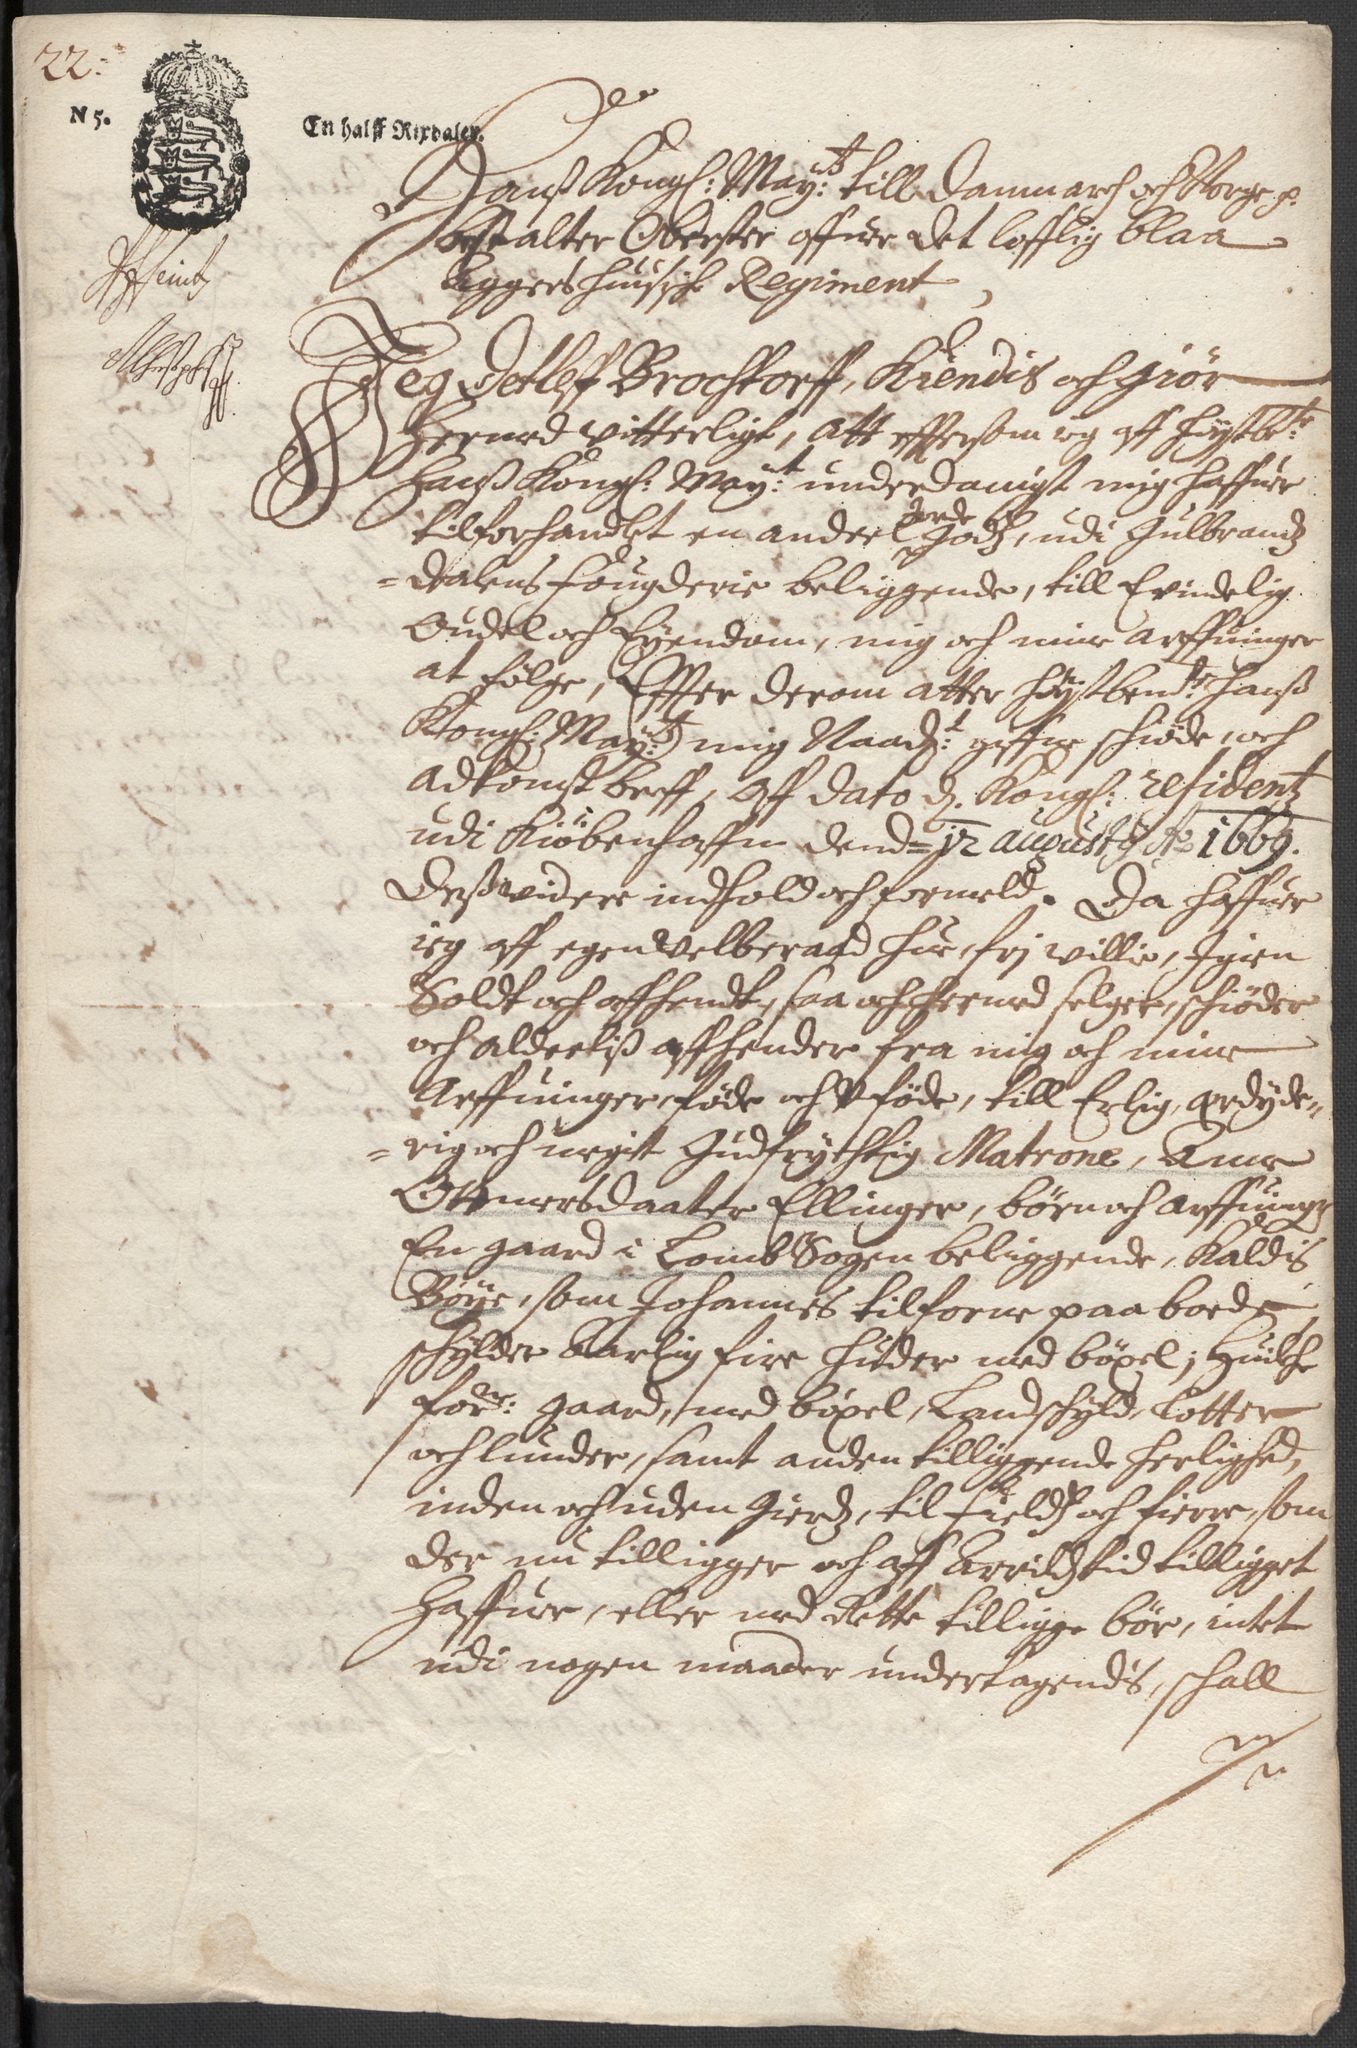 22:
N 5.
En halff Rixdaler.
Hanß Kongl: May:tz till Danmarch och Norge p.
bestalter Oberster offuer det lofflig blaa
Aggershuusische Regiment,
Jeg Detleff Brochtorff, Kiendis och giör
hermed vitterligt, att efftersom ieg aff høystbe:te
Hanß Kongl: May:t underdanigst mig haffuer
tilforhandlet en andeel Jorde godz, udi Gulbrandz
=dalens fougderie beliggende, till Evindelig
Oudel och Eyendom, mig och mine arffuinger
at følge, Effter derom atter høystbem:te Hanß
Kongl: May:tz mig Naad:t geffne schiøde, och
adkomst breff, Aff dato d. Kongl: residentz
udi Kiöbenhaffn dend= 12 augusty Ao 1669.
Deß videre indhold och formeld. Da haffuer
ieg aff egen velberaad hue, frj villie, Igien
Soldt och affhendt, saa och hermed selger, schiøder
och alderliß affhender fra mig och mine
Arffuinger, føde och Vføde, till Erlig, gudyde„
=rig och meget Gudfrychtig Matrone, Anne
Ottmersdaater Ellinger, børn och Arffuing:
En gaard i Lomb Sogen beliggende, Kaldis
Böye, som Johannes tilforne paa boede
schylder Aarlig fire huder med böxel; Huilche
for:ne: gaard, med böxel, Landschyld, Lotter
och lunder, samt anden tilliggende herlighed,
inden och uden gierdz, til fieldz och fierre, som
der nu tilligger och aff Arrildz tid tilligget
haffuer, eller med Rette tilligge bör, intet
udi nogen maader undertagendis, schall